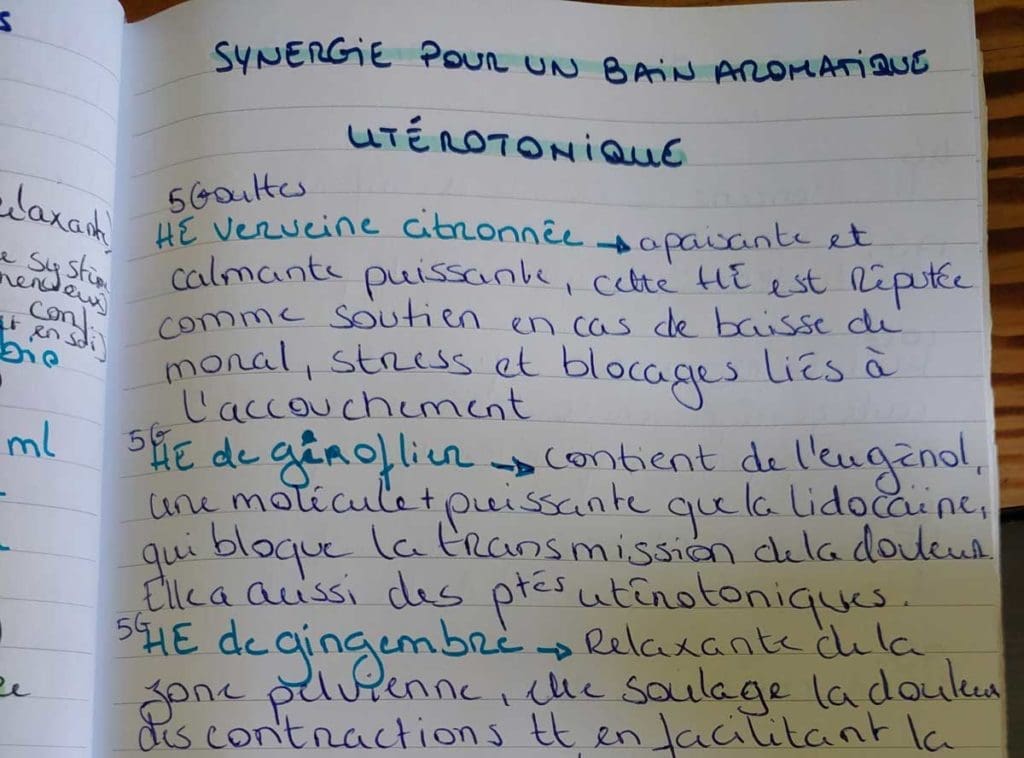 s
elaxante
e systèm
nerveux)
conf
+ en soi)
bre
ml
SYNERGIE POUR UN BAIN AROMATIQUE
UTÉROTONIQUE
5 Gouttes
HE verveine citronnée → apaisante et
calmante puissante, cette HE est Réputée
comme soutien en cas de baisse de
moral, stress et blocages liés à
l'accouchement
5G
HE de giroflier → contient de l'eugénol,
une molécule + puissante que la lidocaïne,
qui bloque la transmission de la douleur.
Elle a aussi des ptés utérotoniques.
5G
HE de gingembre → Relaxante de la
zone pelvienne, elle soulage la douleur
des contractions tt en facilitant la